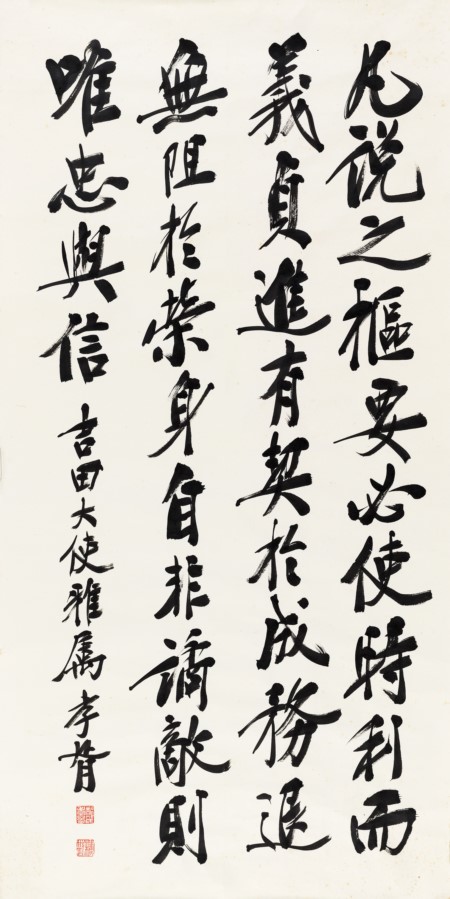 凡说之樞要必使時利而
義貞進有契於成務退
無阻於榮身自非譎敵則
唯忠與信
吉田大使雅属 孝胥